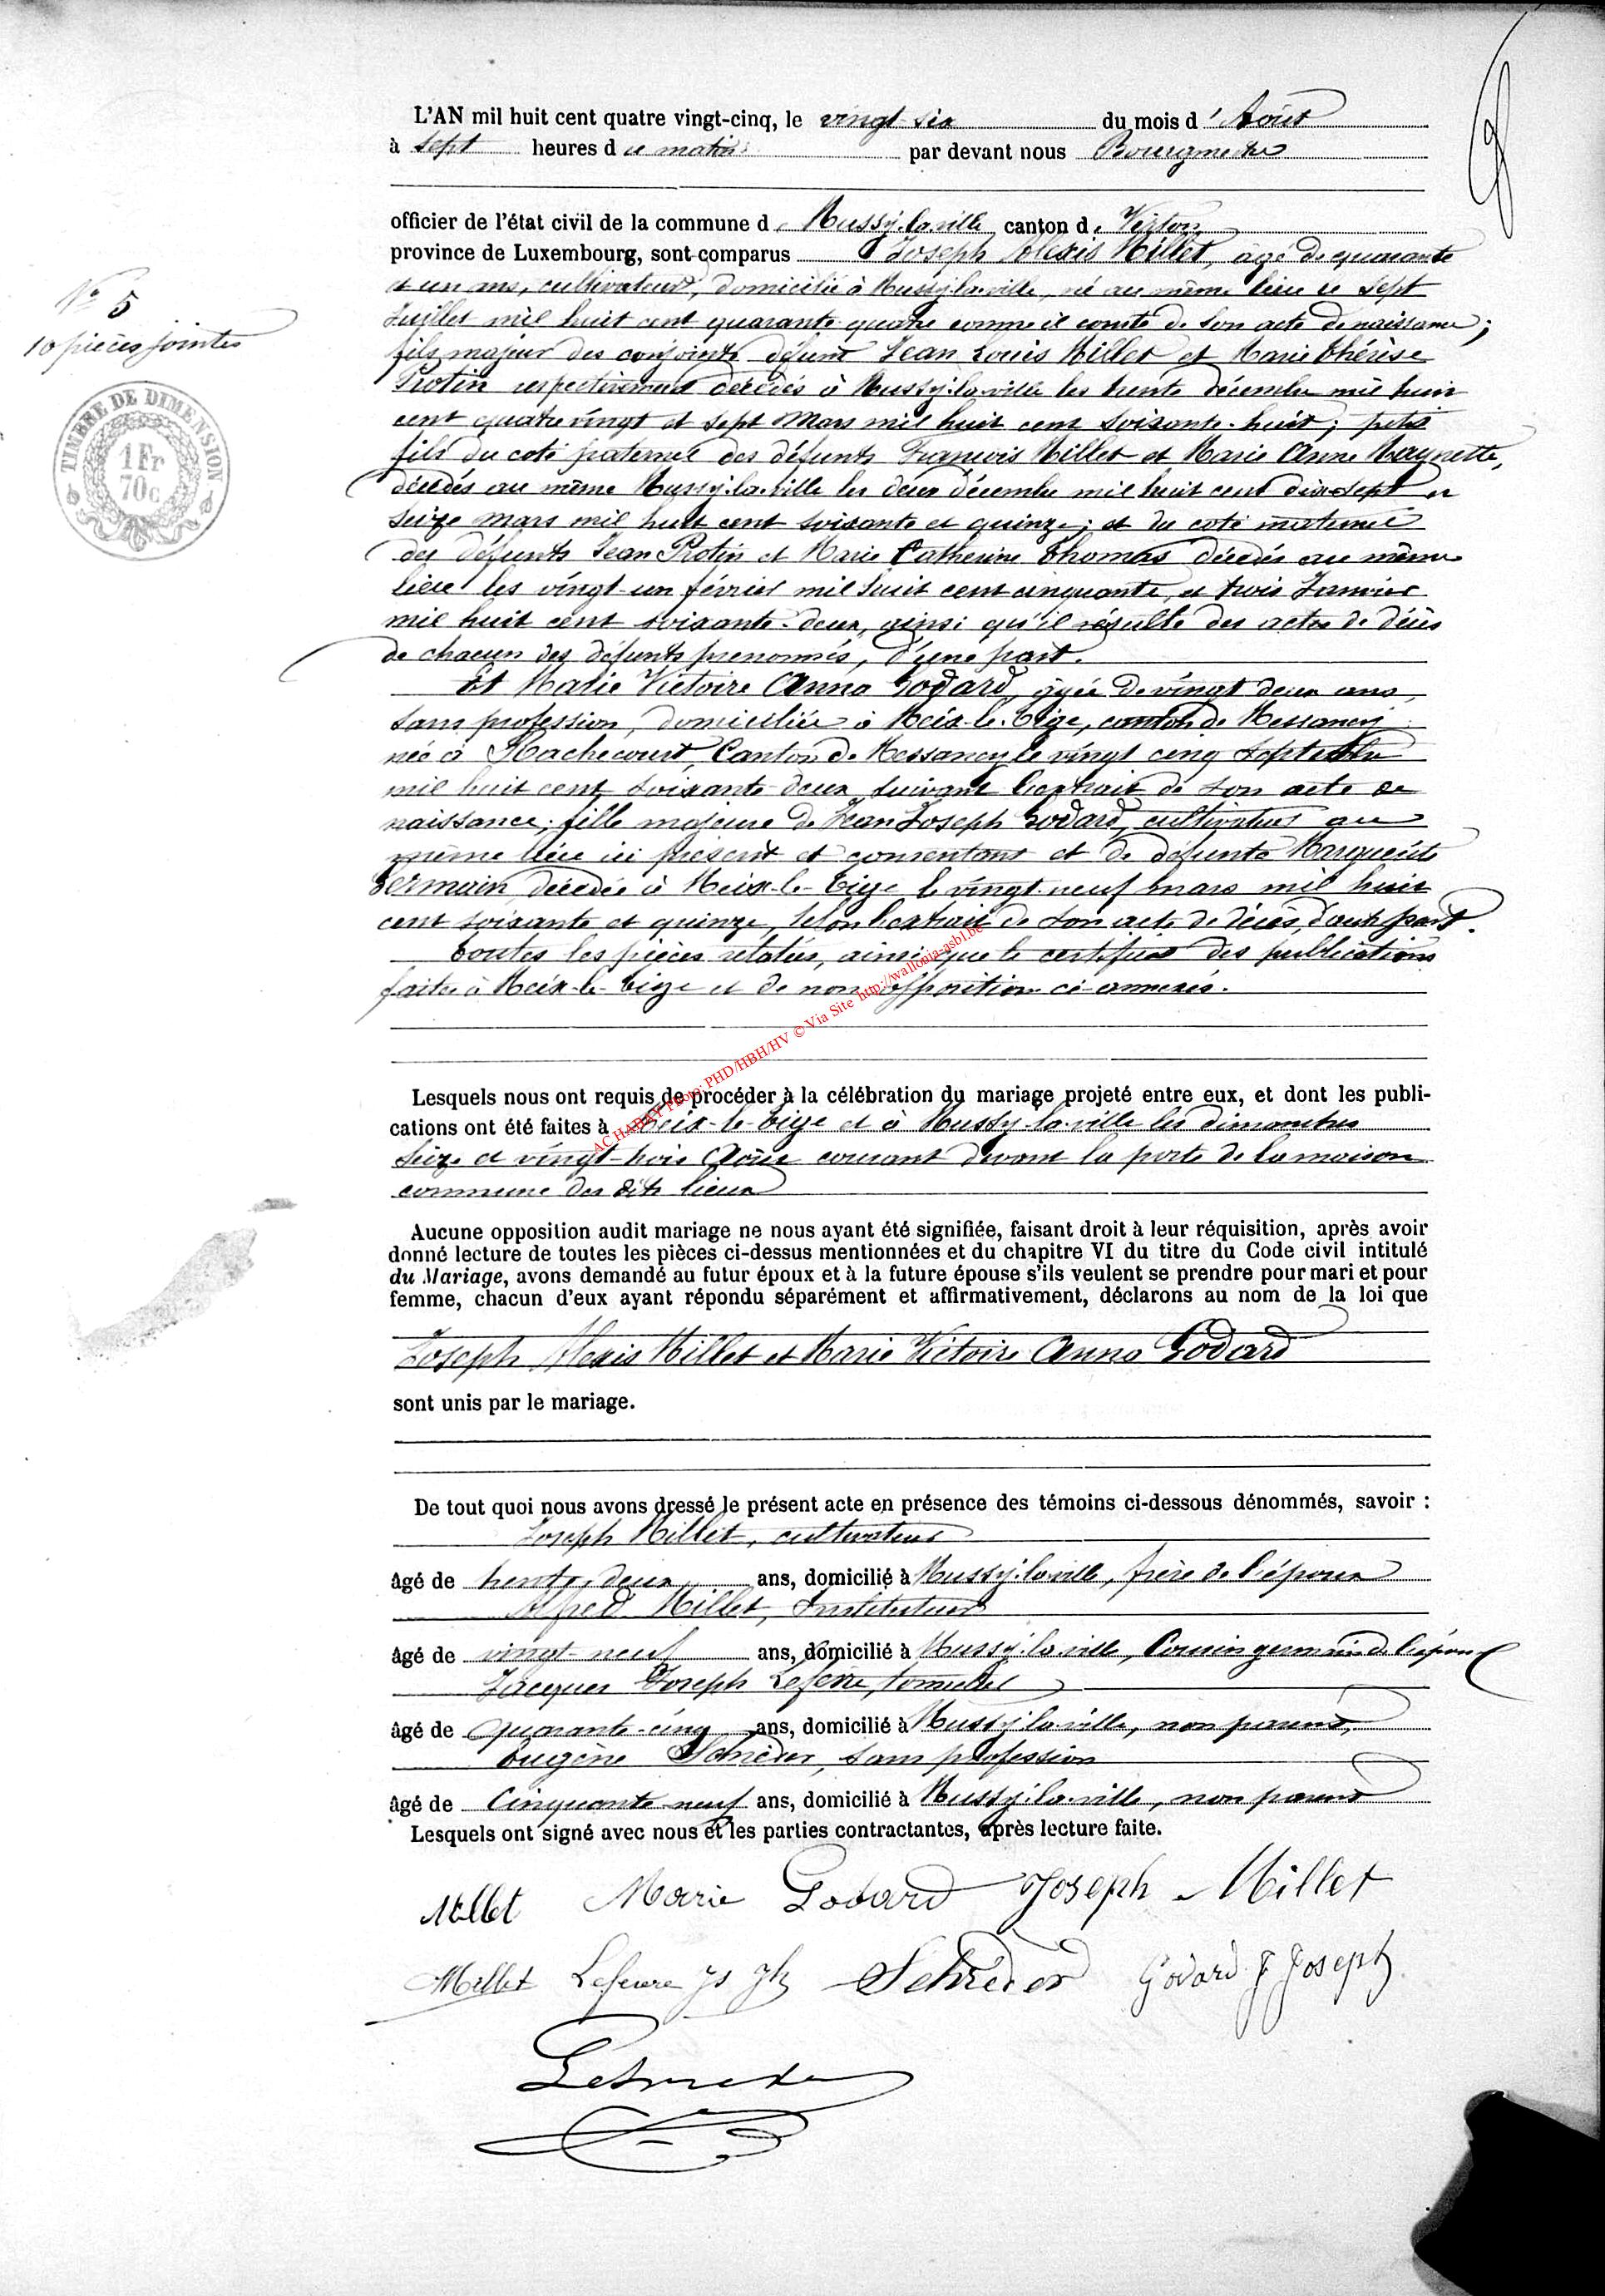 L'AN mil huit cent quatre vingt-cinq, le vingt six du mois d'Août
à sept heures du matin par devant nous Bourgmestre
officier de l'état civil de la commune de Mussy-la-ville canton de Virton
province de Luxembourg, sont comparus Joseph Alexis Millet, âgé de quarante
N° 5
et un ans, cultivateur, domicilié à Mussy-la-ville, né au même lieu le sept
10 pièces jointes
Juillet mil huit cent quarante quatre comme il conste de son acte de naissance;
fils majeur des conjoints défunts Jean Louis Millet et Marie Thérèse
Protin respectivement décédés à Mussy-la-ville les trente décembre mil huit
cent quatre vingt et sept Mars mil huit cent soixante-huit; petit
TIMBRE DE DIMENSION
1 Fr
70c
fils du coté paternel des défunts François Millet et Marie Anne Maynette,
décédés au même Mussy-la-ville les deux décembre mil huit cent dix-sept et
seize mars mil huit cent soixante et quinze; et du coté maternel
des défunts Jean Protin et Marie Catherine Thomas décédés au même
lieu les vingt-un février mil huit cent cinquante, et trois Janvier
mil huit cent soixante-deux, ainsi qu'il résulte des actes de décès
de chacun des défunts prenommés, d'une part.
Et Marie Victoire Anna Godard, âgée de vingt deux ans,
sans profession, domiciliée à Meix-le-Tige, canton de Messancy
née à Hachecourt, Canton de Messancy le vingt cinq septembre
mil huit cent soixante-deux suivant l'extrait de son acte de
naissance; fille majeure de Jean Joseph Godard, cultivateur au
même lieu ici présent et consentant et de défunte Marguerite
Germain, décédée à Meix-le-Tige le vingt-neuf mars mil huit
cent soixante et quinze, selon l'extrait de son acte de décès, d'autre part.
Toutes les pièces relatées, ainsi que le certificat des publications
faites à Meix-le-Tige et de non opposition ci-annexés.
ACHABAY Photo: PHD/HBH/HV © Via Site http://wallonia-asbl.be
Lesquels nous ont requis de procéder à la célébration du mariage projeté entre eux, et dont les publi-
cations ont été faites à Meix-le-Tige et à Mussy-la-ville les dimanches
seize et vingt-trois Août courant devant la porte de la maison
commune des dits lieux
Aucune opposition audit mariage ne nous ayant été signifiée, faisant droit à leur réquisition, après avoir
donné lecture de toutes les pièces ci-dessus mentionnées et du chapitre VI du titre du Code civil intitulé
du Mariage, avons demandé au futur époux et à la future épouse s'ils veulent se prendre pour mari et pour
femme, chacun d'eux ayant répondu séparément et affirmativement, déclarons au nom de la loi que
Joseph Alexis Millet et Marie Victoire Anna Godard
sont unis par le mariage.
De tout quoi nous avons dressé le présent acte en présence des témoins ci-dessous dénommés, savoir :
Joseph Millet, cultivateur
âgé de trente-deux ans, domicilié à Mussy-la-ville, frère de l'époux
Alfred Millet, Instituteur
âgé de vingt-neuf ans, domicilié à Mussy-la-ville, Cousin germain de l'époux
Jacques Joseph Lefevre, tonnelier
âgé de quarante-cinq ans, domicilié à Mussy-la-ville, non parent,
Eugène Schréder, sans profession
âgé de Cinquante-neuf ans, domicilié à Mussy-la-ville, non parent
Lesquels ont signé avec nous et les parties contractantes, après lecture faite.
Millet Marie Godard Joseph Millet
Millet Lefevre Js Jh Schréder Godard J Joseph